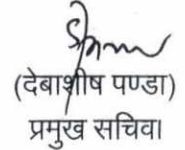 (देबाशीष पण्डा)
प्रमुख सचिव।